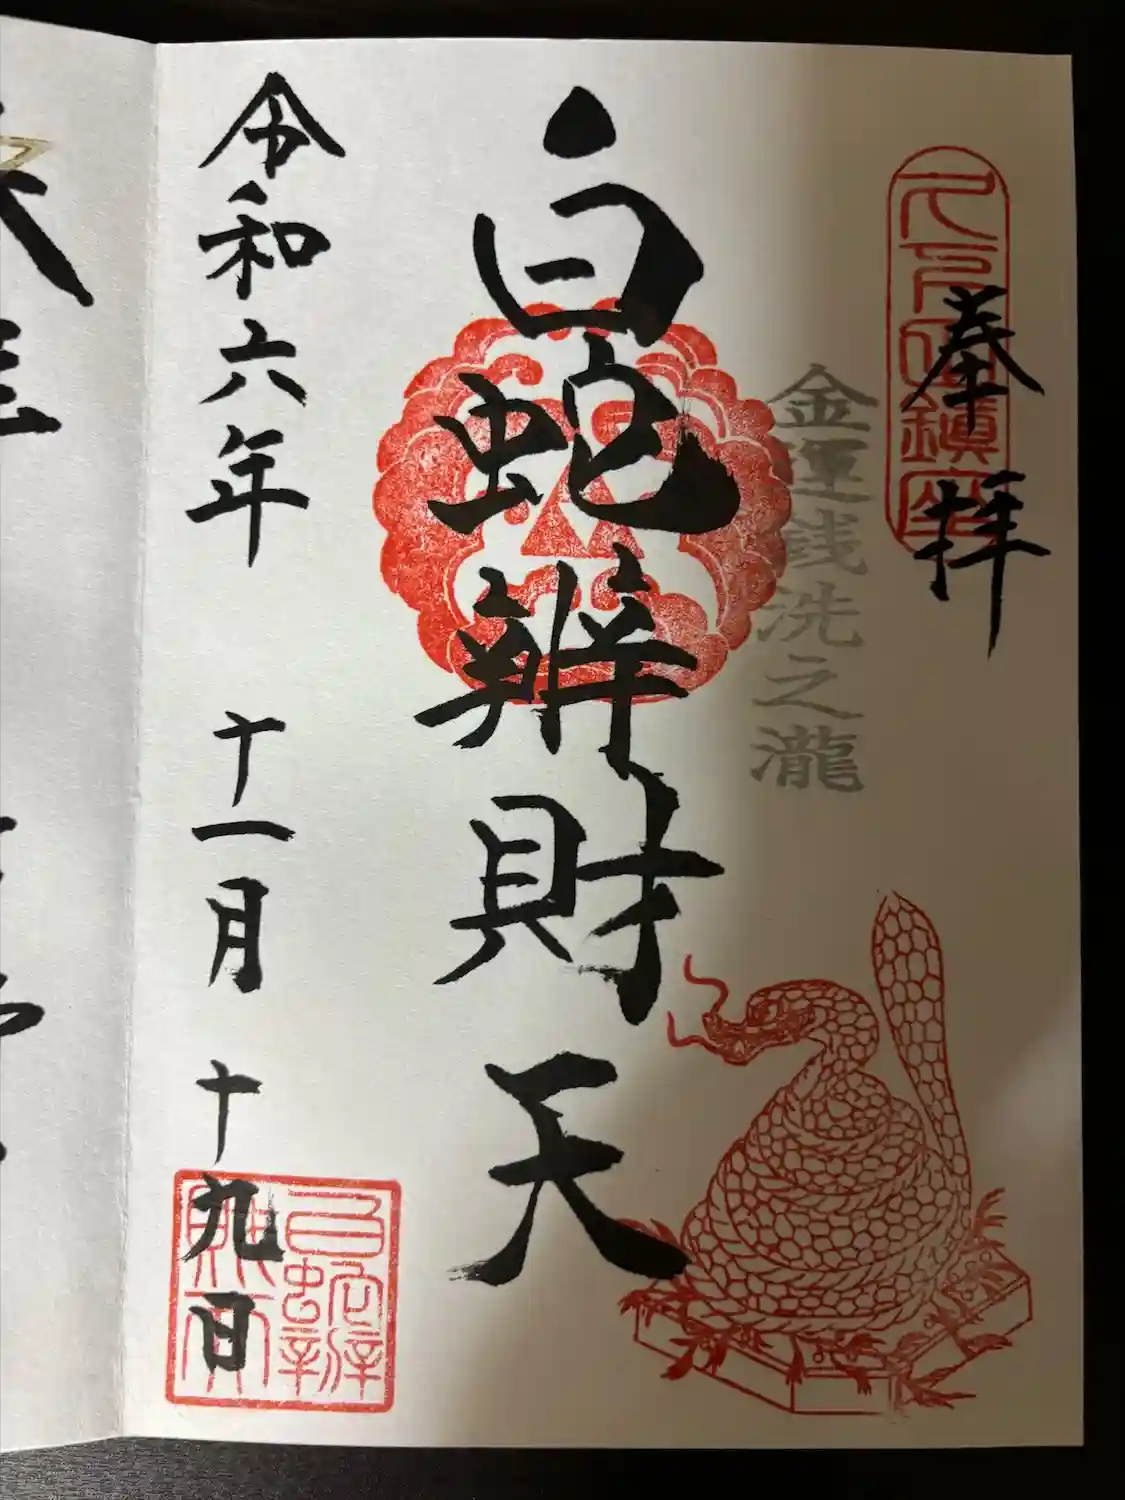 奉拝
金運銭洗之瀧
白蛇辨財天
令和六年 十一月 十九日
白蛇辨
財天